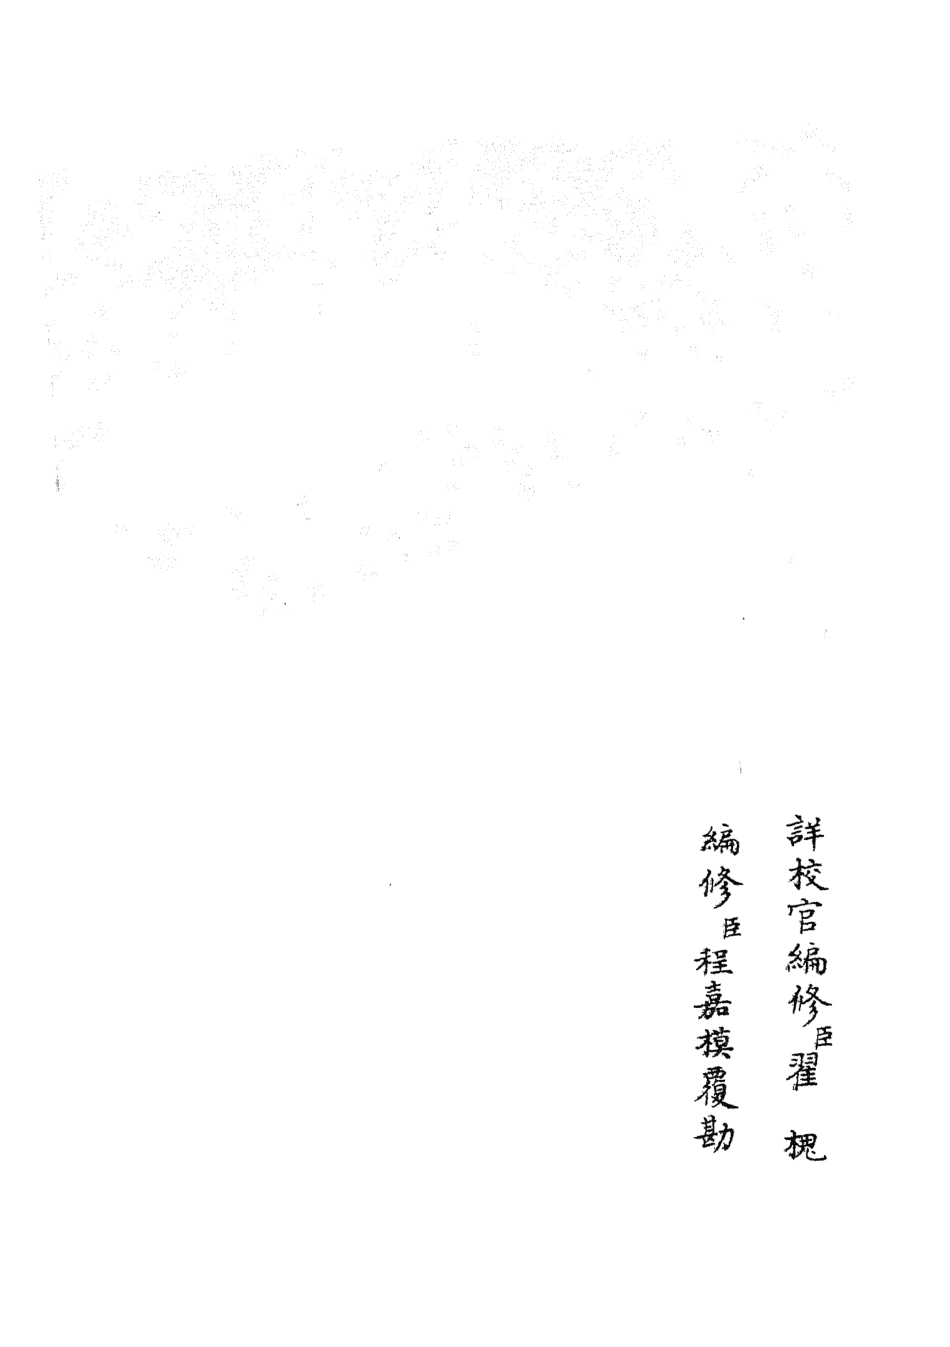 詳校官編修臣翟槐
編修臣程嘉模覆勘